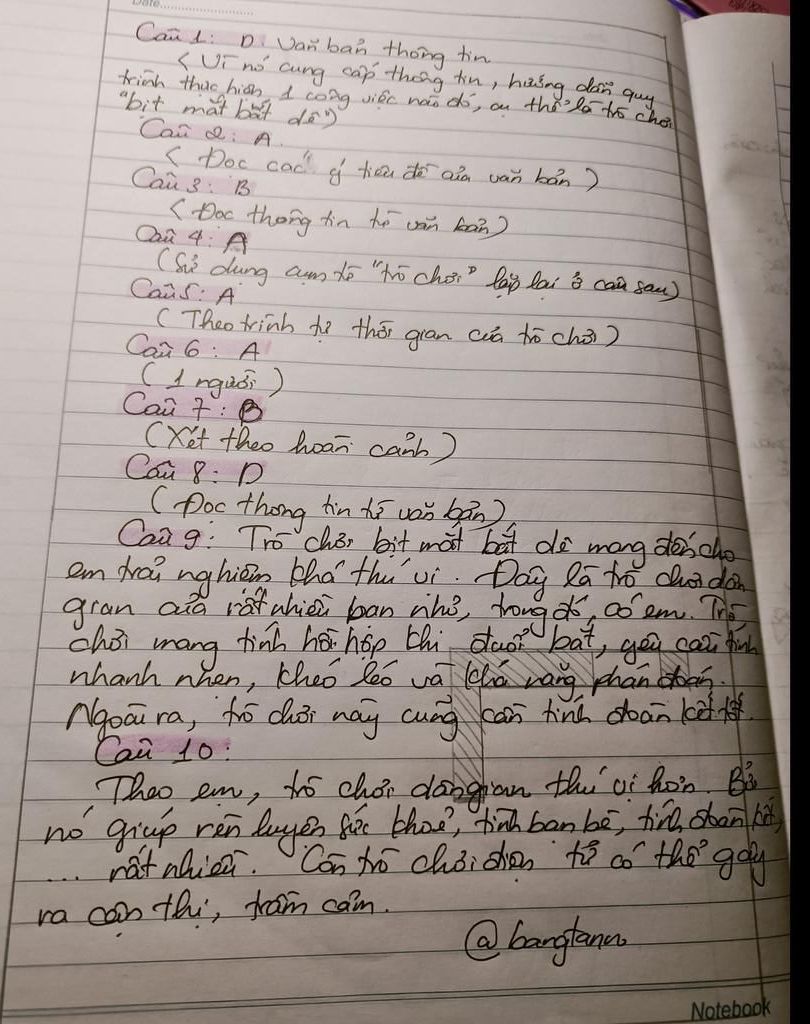 Date
Câu 1: D. Văn bản thông tin
( Vì nó cung cấp thông tin, hướng dẫn quy
trình thực hiện 1 công việc nào đó, cụ thể là trò chơi
"bịt mắt bắt dê")
Câu 2: A.
( Đọc các ý tiêu đề của văn bản )
Câu 3: B
( Đọc thông tin từ văn bản)
Câu 4: A
(Sử dụng cụm từ "trò chơi" lặp lại ở câu sau)
Câu 5: A
( Theo trình tự thời gian của trò chơi )
Câu 6: A
( 1 người )
Câu 7: B
(Xét theo hoàn cảnh)
Câu 8: D
(Đọc thông tin từ văn bản)
Câu 9: Trò chơi bịt mắt bắt dê mang đến cho
em trải nghiệm khá thú vị. Đây là trò chơi dân
gian của rất nhiều bạn nhỏ, trong đó, có em. Trò
chơi mang tính hồi hộp khi đuổi bắt, yêu cầu tính
nhanh nhẹn, khéo léo và khả năng phán đoán.
Ngoài ra, trò chơi này cũng cần tính đoàn kết tốt.
Câu 10:
Theo em, trò chơi dân gian thú vị hơn. Bởi
nó giúp rèn luyện sức khoẻ, tình bạn bè, tính đoàn kết,
... rất nhiều. Còn trò chơi điện tử có thể gây
ra cận thị, trầm cảm.
@bangtann
Notebook